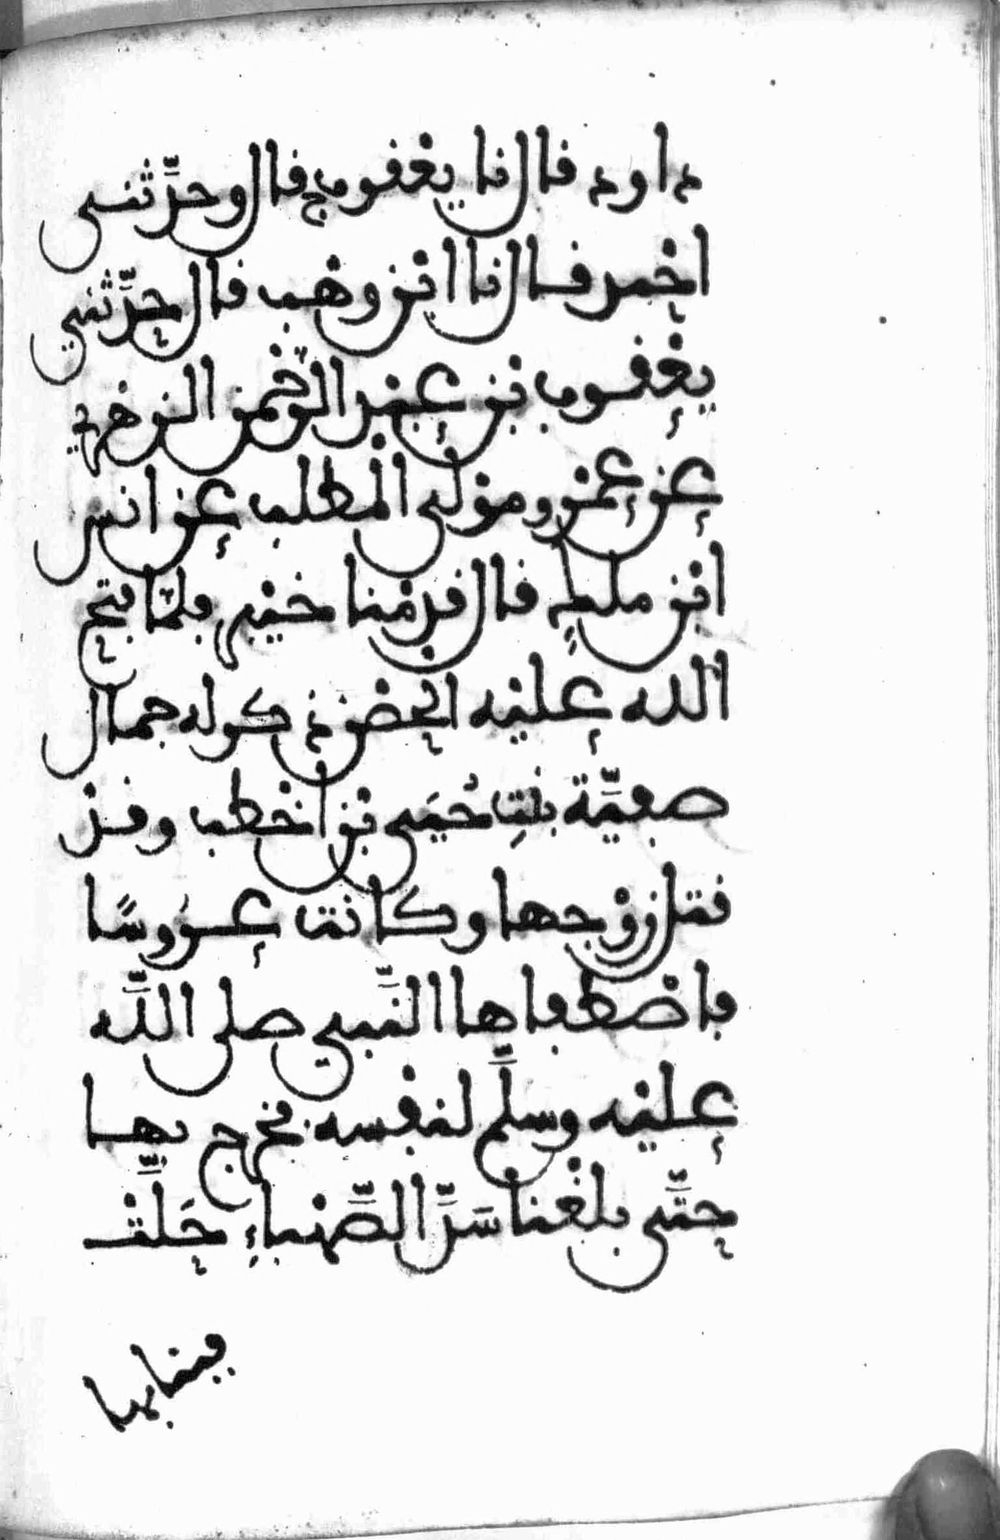 داود قال نا يعْقوب ح قال وحدّثنى
احْمد قال نا ابْن وهْب قال حدّثني
يعْقوب بْن عبْد الرّحْمن الزهْري
عن عمْرو موْلى المطلب عن انس
ابْن ملك قال قدمْنا خيْبر فلمّا فتح
الله عليْه الحصْن ذكر له جمال
صفيّة بنْتِ حُيَيى بْن اخْطب وقدْ
قتل زوْجها وكانت عَرُوسًا
فاصْطفاها النّبي صلى اللّه
عليْه وسلّم لنفْسه فخرج بها
حتّى بلغْنا سَدّ الصّهْباءِ حَلّتْ
فبنا بها